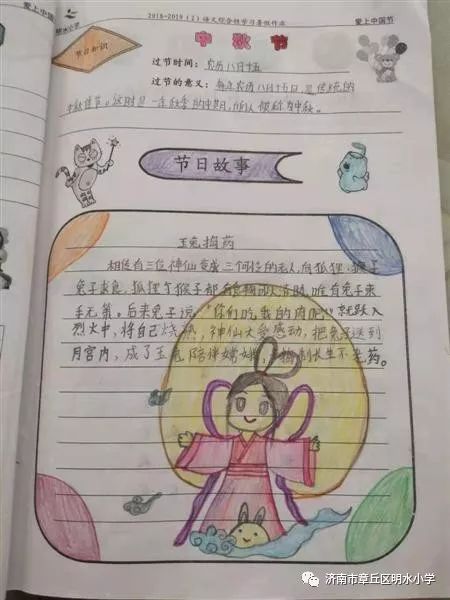 2018-2019（2）语文综合性学习暑假作业
爱上中国节
明水小学
节日知识
中秋节
过节时间：农历八月十五
过节的意义：每年农历八月十五日，是传统的
中秋佳节。这时是一年秋季的中期，所以被称为中秋。
节日故事
玉兔捣药
相传有三位神仙变成三个可怜的老人，向狐狸、猴子
兔子求食，狐狸与猴子都有食物可以济助，唯有兔子束
手无策。后来兔子说：“你们吃我的肉吧！”就跃入
烈火中，将自己烧熟，神仙大受感动，把兔子送到
月宫内，成了玉兔陪伴嫦娥，并捣制长生不老药。
济南市章丘区明水小学